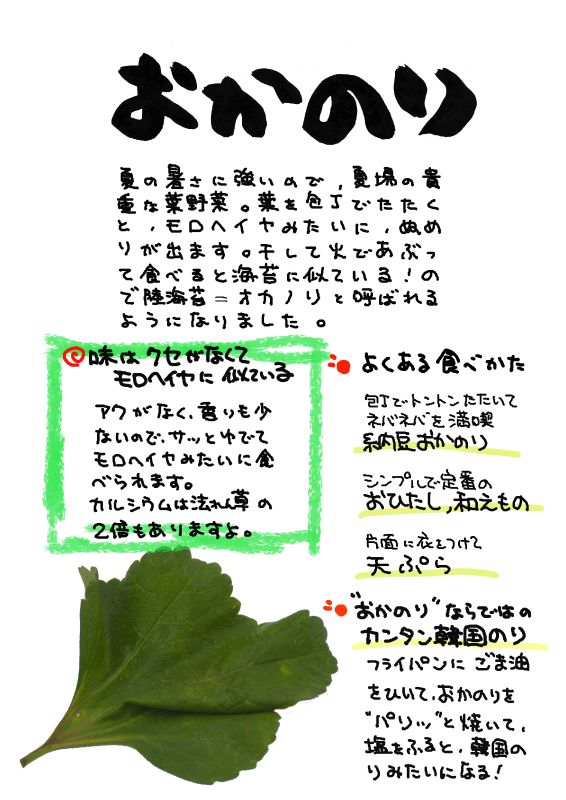 おかのり
夏の暑さに強いので,夏場の貴
重な葉野菜。葉を包丁でたたく
と,モロヘイヤみたいに,ぬめ
りが出ます。干して火であぶっ
て食べると海苔に似ている!の
で陸海苔=オカノリと呼ばれる
ようになりました。
味はクセがなくて
モロヘイヤに似ている
アクがなく、香りも少
ないので、サッとゆでて
モロヘイヤみたいに食
べられます。
カルシウムは法れん草の
2倍もありますよ。
よくある食べかた
包丁でトントンたたいて
ネバネバを満喫
納豆おかのり
シンプルで定番の
おひたし,和えもの
片面に衣をつけて
天ぷら
"おかのり"ならではの
カンタン韓国のり
フライパンにごま油
をひいて、おかのりを
"パリッ"と焼いて、
塩をふると、韓国の
りみたいになる!